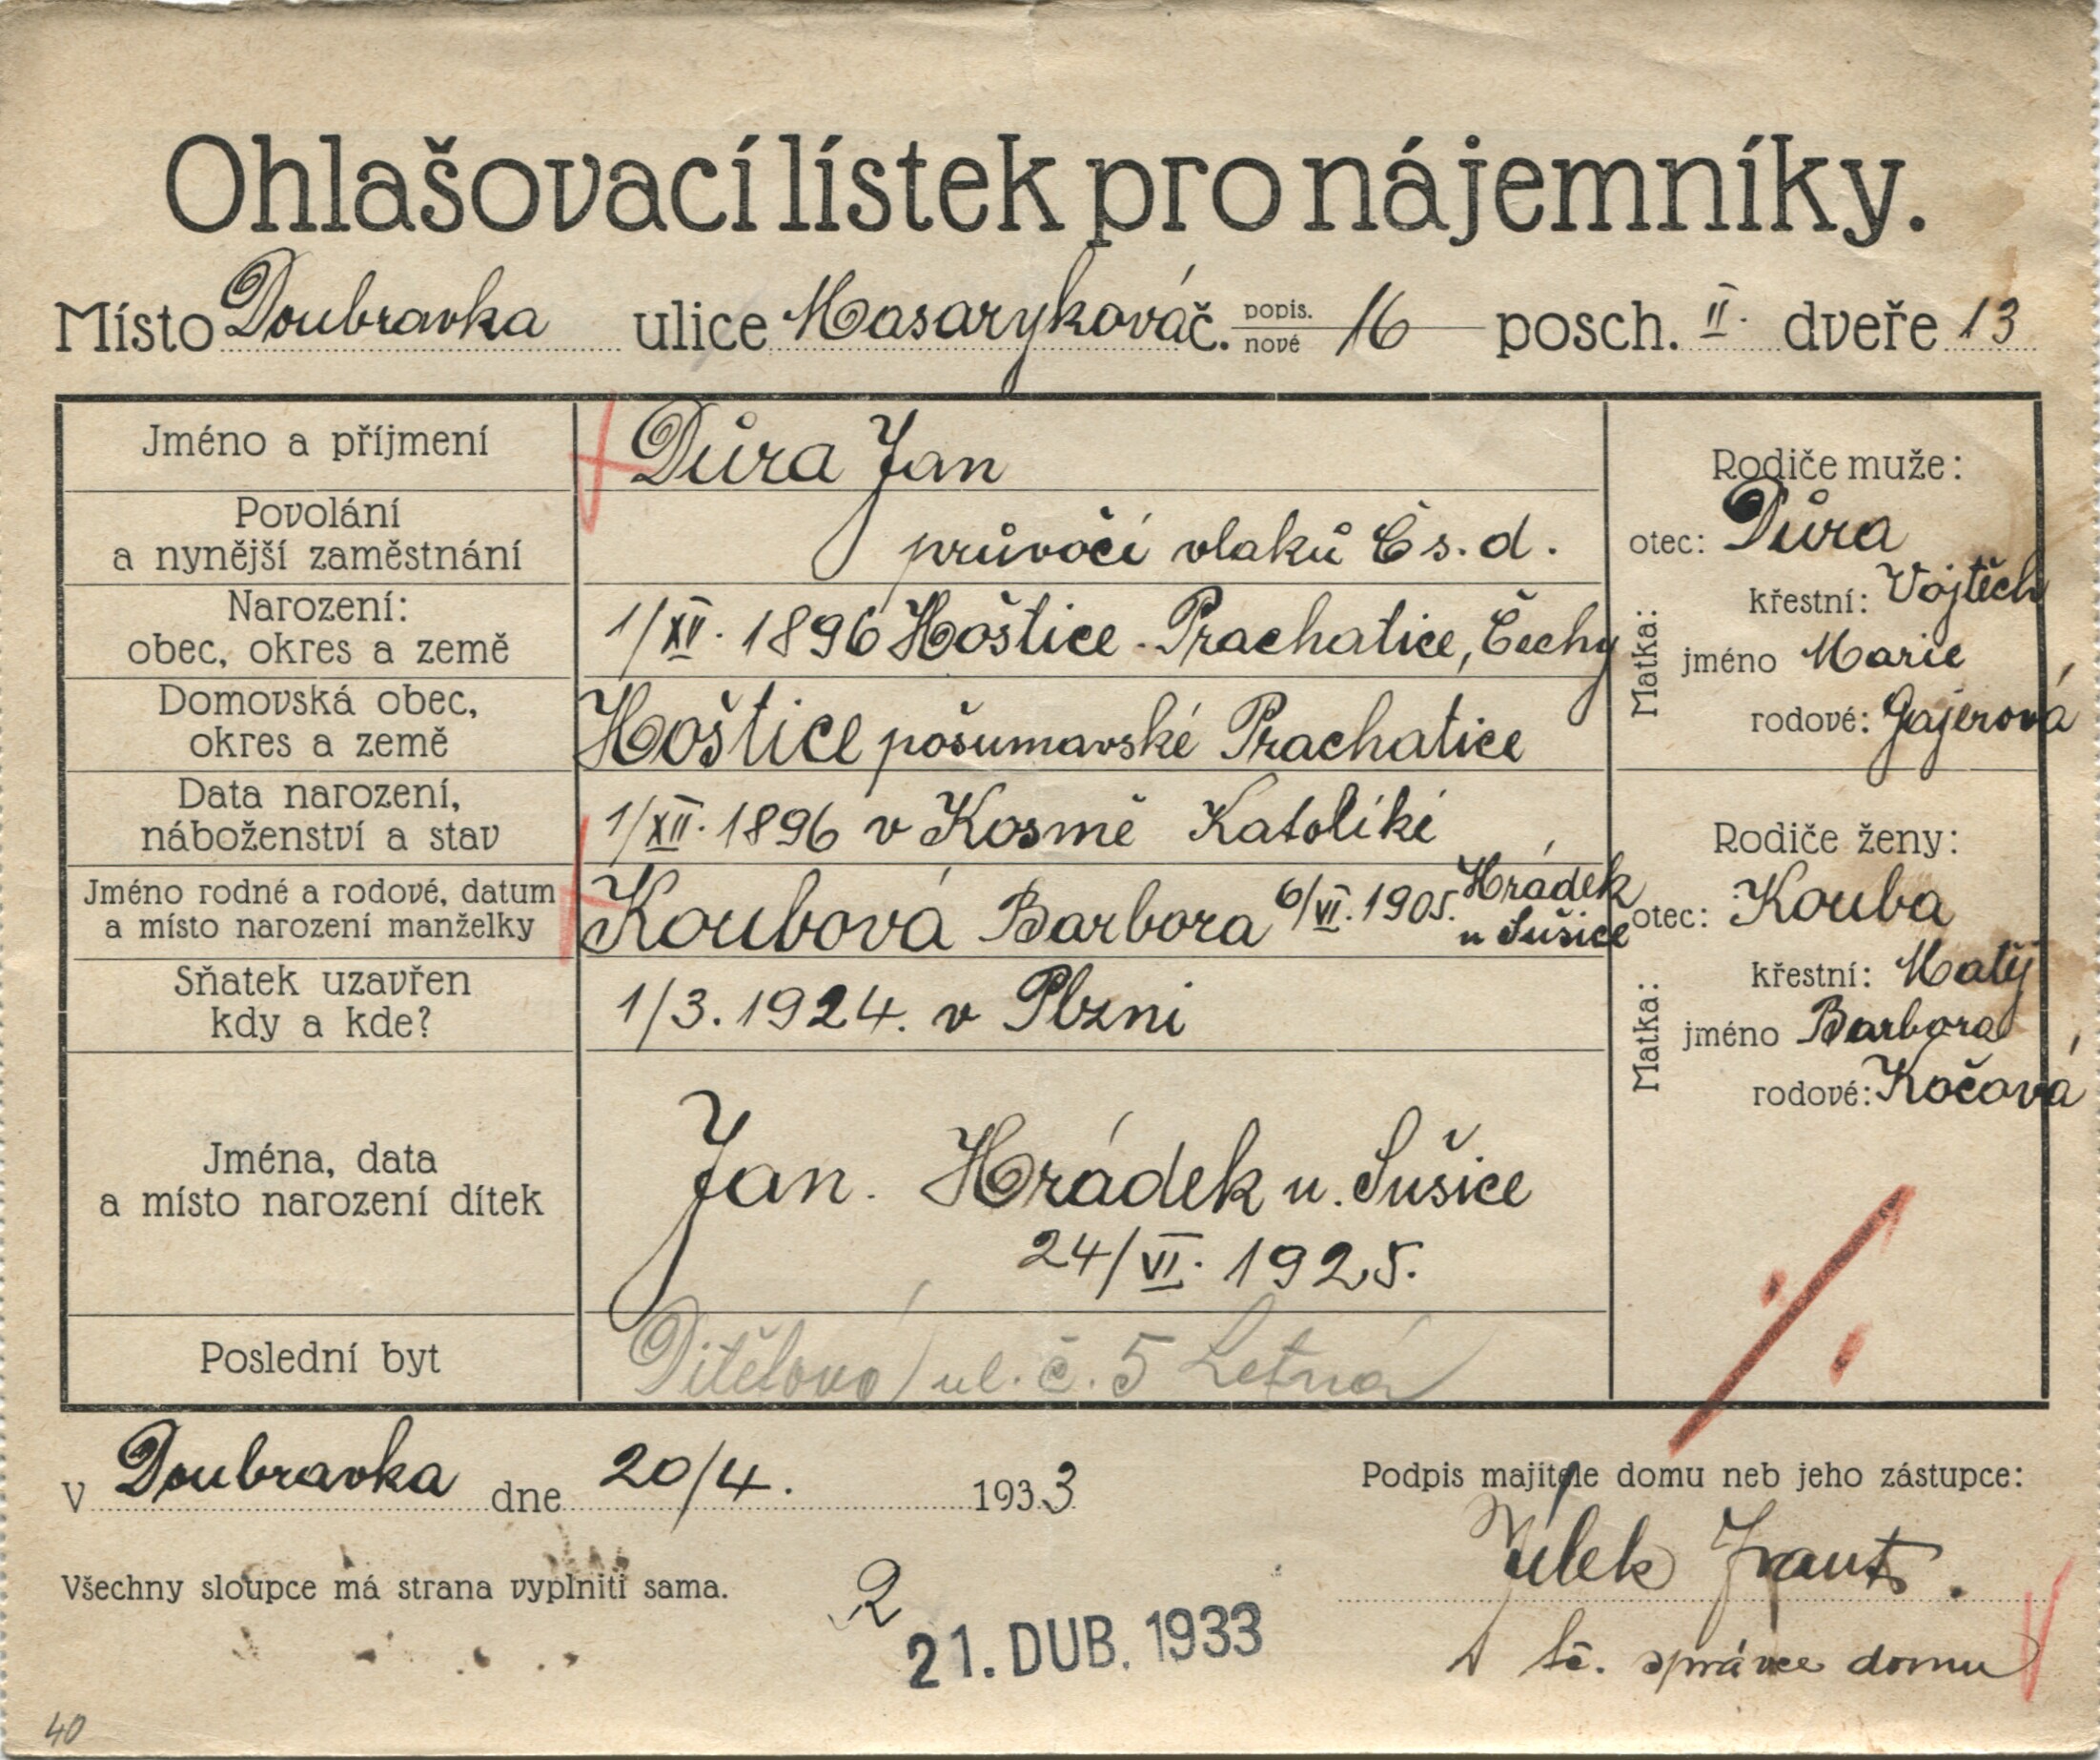 Ohlašovací lístek pro nájemníky.
Místo Doubravka ulice Masaryková č. popis. nové 16 posch. II. dveře 13
Jméno a příjmení
Důra Jan
Povolání
a nynější zaměstnání
průvočí vlaků Čs. d.
Narození:
obec, okres a země
1/XII. 1896 Hoštice - Prachatice, Čechy
Domovská obec,
okres a země
Hoštice pošumavské Prachatice
Data narození,
náboženství a stav
1/XII. 1896 v Kosmě Katoliki
Jméno rodné a rodové, datum
a místo narození manželky
Koubová Barbora 6/VI. 1905. Hrádek
u Sušice
Sňatek uzavřen
kdy a kde?
1/3. 1924. v Plzni
Jména, data
a místo narození dítek
Jan. Hrádek u. Sušice
24/VI. 1925.
Poslední byt
ul. č. 5 Letná
Rodiče muže:
otec: Důra
křestní: Vojtěch
Matka:
jméno Marie
rodové: Gajerová
Rodiče ženy:
otec: Kouba
křestní: Matěj
Matka:
jméno Barbora
rodové: Kočová
V Doubravka dne 20/4. 1933
Podpis majitele domu neb jeho zástupce:
Jílek Frant.
t. č. správce domu
Všechny sloupce má strana vyplniti sama.
2
21. DUB. 1933
40